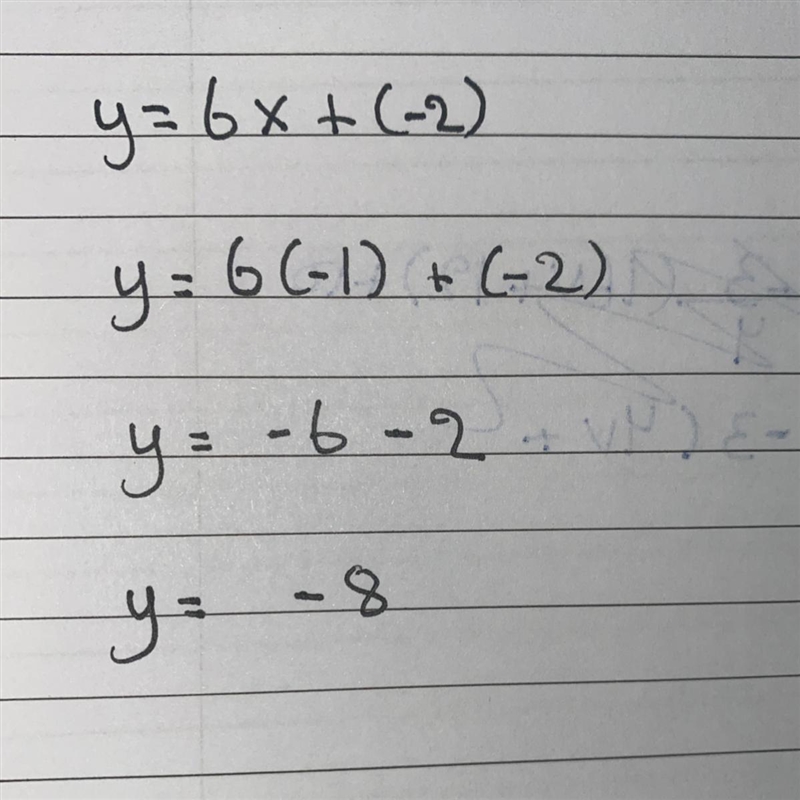 y = 6x + (-2)
y = 6(-1) + (-2)
y = -6 - 2
y = -8